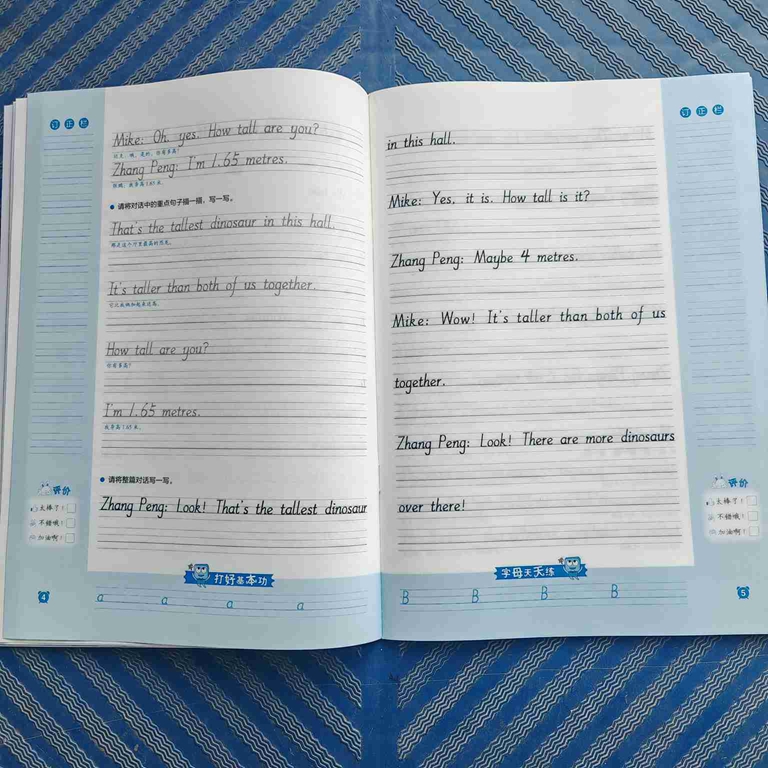 订正栏
Mike: Oh, yes. How tall are you?
Zhang Peng: I'm 1.65 metres.
请将对话中的重点句子描一描，写一写。
That's the tallest dinosaur in this hall.
It's taller than both of us together.
How tall are you?
你有多高？
I'm 1.65 metres.
我身高1.65米。
请将整篇对话写一写。
Zhang Peng: Look! That's the tallest dinosaur
评价
太棒了！
不错哦！
加油啊！
打好基本功
4
a a a a
订正栏
in this hall.
Mike: Yes, it is. How tall is it?
Zhang Peng: Maybe 4 metres.
Mike: Wow! It's taller than both of us
together.
Zhang Peng: Look! There are more dinosaurs
over there!
评价
太棒了！
不错哦！
加油啊！
字母天天练
B B B B
5